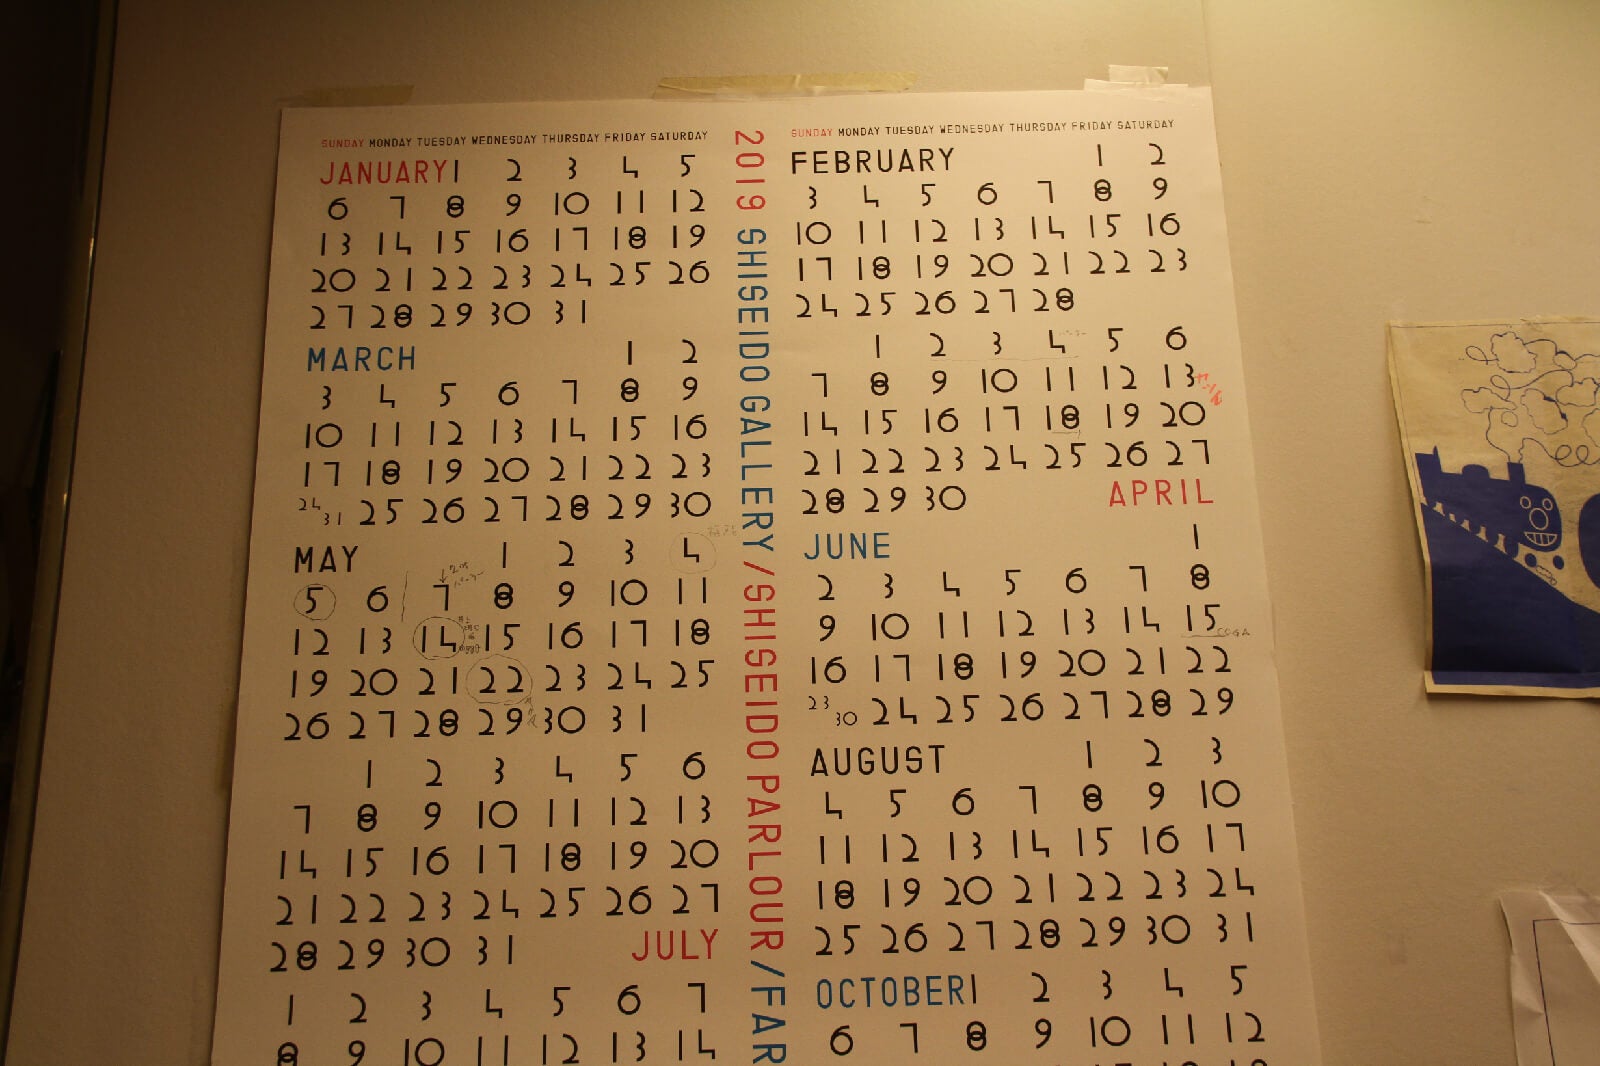 SUNDAY MONDAY TUESDAY WEDNESDAY THURSDAY FRIDAY SATURDAY
JANUARY 1 2 3 4 5
6 7 8 9 10 11 12
13 14 15 16 17 18 19
20 21 22 23 24 25 26
27 28 29 30 31
MARCH 1 2
3 4 5 6 7 8 9
10 11 12 13 14 15 16
17 18 19 20 21 22 23
24 31 25 26 27 28 29 30
MAY 1 2 3 4
5 6 7 8 9 10 11
12 13 14 15 16 17 18
19 20 21 22 23 24 25
26 27 28 29 30 31
1 2 3 4 5 6
7 8 9 10 11 12 13
14 15 16 17 18 19 20
21 22 23 24 25 26 27
28 29 30 31 JULY
1 2 3 4 5 6 7
8 9 10 11 12 13 14
2019 SHISEIDO GALLERY / SHISEIDO PARLOUR / FAR
SUNDAY MONDAY TUESDAY WEDNESDAY THURSDAY FRIDAY SATURDAY
FEBRUARY 1 2
3 4 5 6 7 8 9
10 11 12 13 14 15 16
17 18 19 20 21 22 23
24 25 26 27 28
1 2 3 4 5 6
7 8 9 10 11 12 13
14 15 16 17 18 19 20
21 22 23 24 25 26 27
28 29 30 APRIL
JUNE 1
2 3 4 5 6 7 8
9 10 11 12 13 14 15
16 17 18 19 20 21 22
23 30 24 25 26 27 28 29
AUGUST 1 2 3
4 5 6 7 8 9 10
11 12 13 14 15 16 17
18 19 20 21 22 23 24
25 26 27 28 29 30 31
OCTOBER 1 2 3 4 5
6 7 8 9 10 11 12